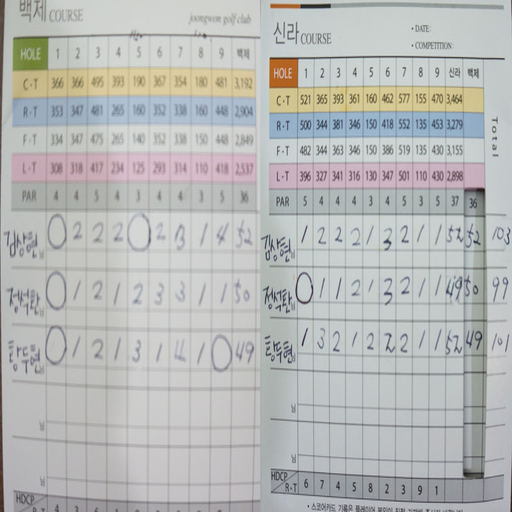 백제 COURSE joongwon golf club
HOLE 1 2 3 4 5 6 7 8 9 백제
C·T 366 366 495 393 190 367 354 180 481 3,192
R·T 353 347 481 265 160 352 338 160 448 2,904
F·T 334 347 475 265 140 352 338 150 448 2,849
L·T 308 318 417 234 125 293 314 110 418 2,537
PAR 4 4 5 4 3 4 4 3 5 36
김상현님 0 2 2 2 0 2 3 1 4 52
정석탄님 0 1 2 1 2 3 3 1 1 50
탕두현님 0 1 2 1 3 1 4 1 0 49
님
님
HDCP R·T
신라 COURSE
• DATE:
• COMPETITION:
HOLE 1 2 3 4 5 6 7 8 9 신라 백제
C·T 521 365 393 361 160 462 577 155 470 3,464
R·T 500 344 381 346 150 418 552 135 453 3,279
F·T 482 344 363 346 150 386 519 135 430 3,155
L·T 396 327 341 316 130 347 501 110 430 2,898
Total
PAR 5 4 4 4 3 4 5 3 5 37 36
김상현님 1 2 2 2 1 3 2 1 1 52 52 103
정석탄님 0 1 1 2 1 3 2 1 1 49 50 99
탕두현님 1 3 2 1 2 2 2 1 1 52 49 101
님
님
HDCP R·T 6 7 4 5 8 2 3 9 1